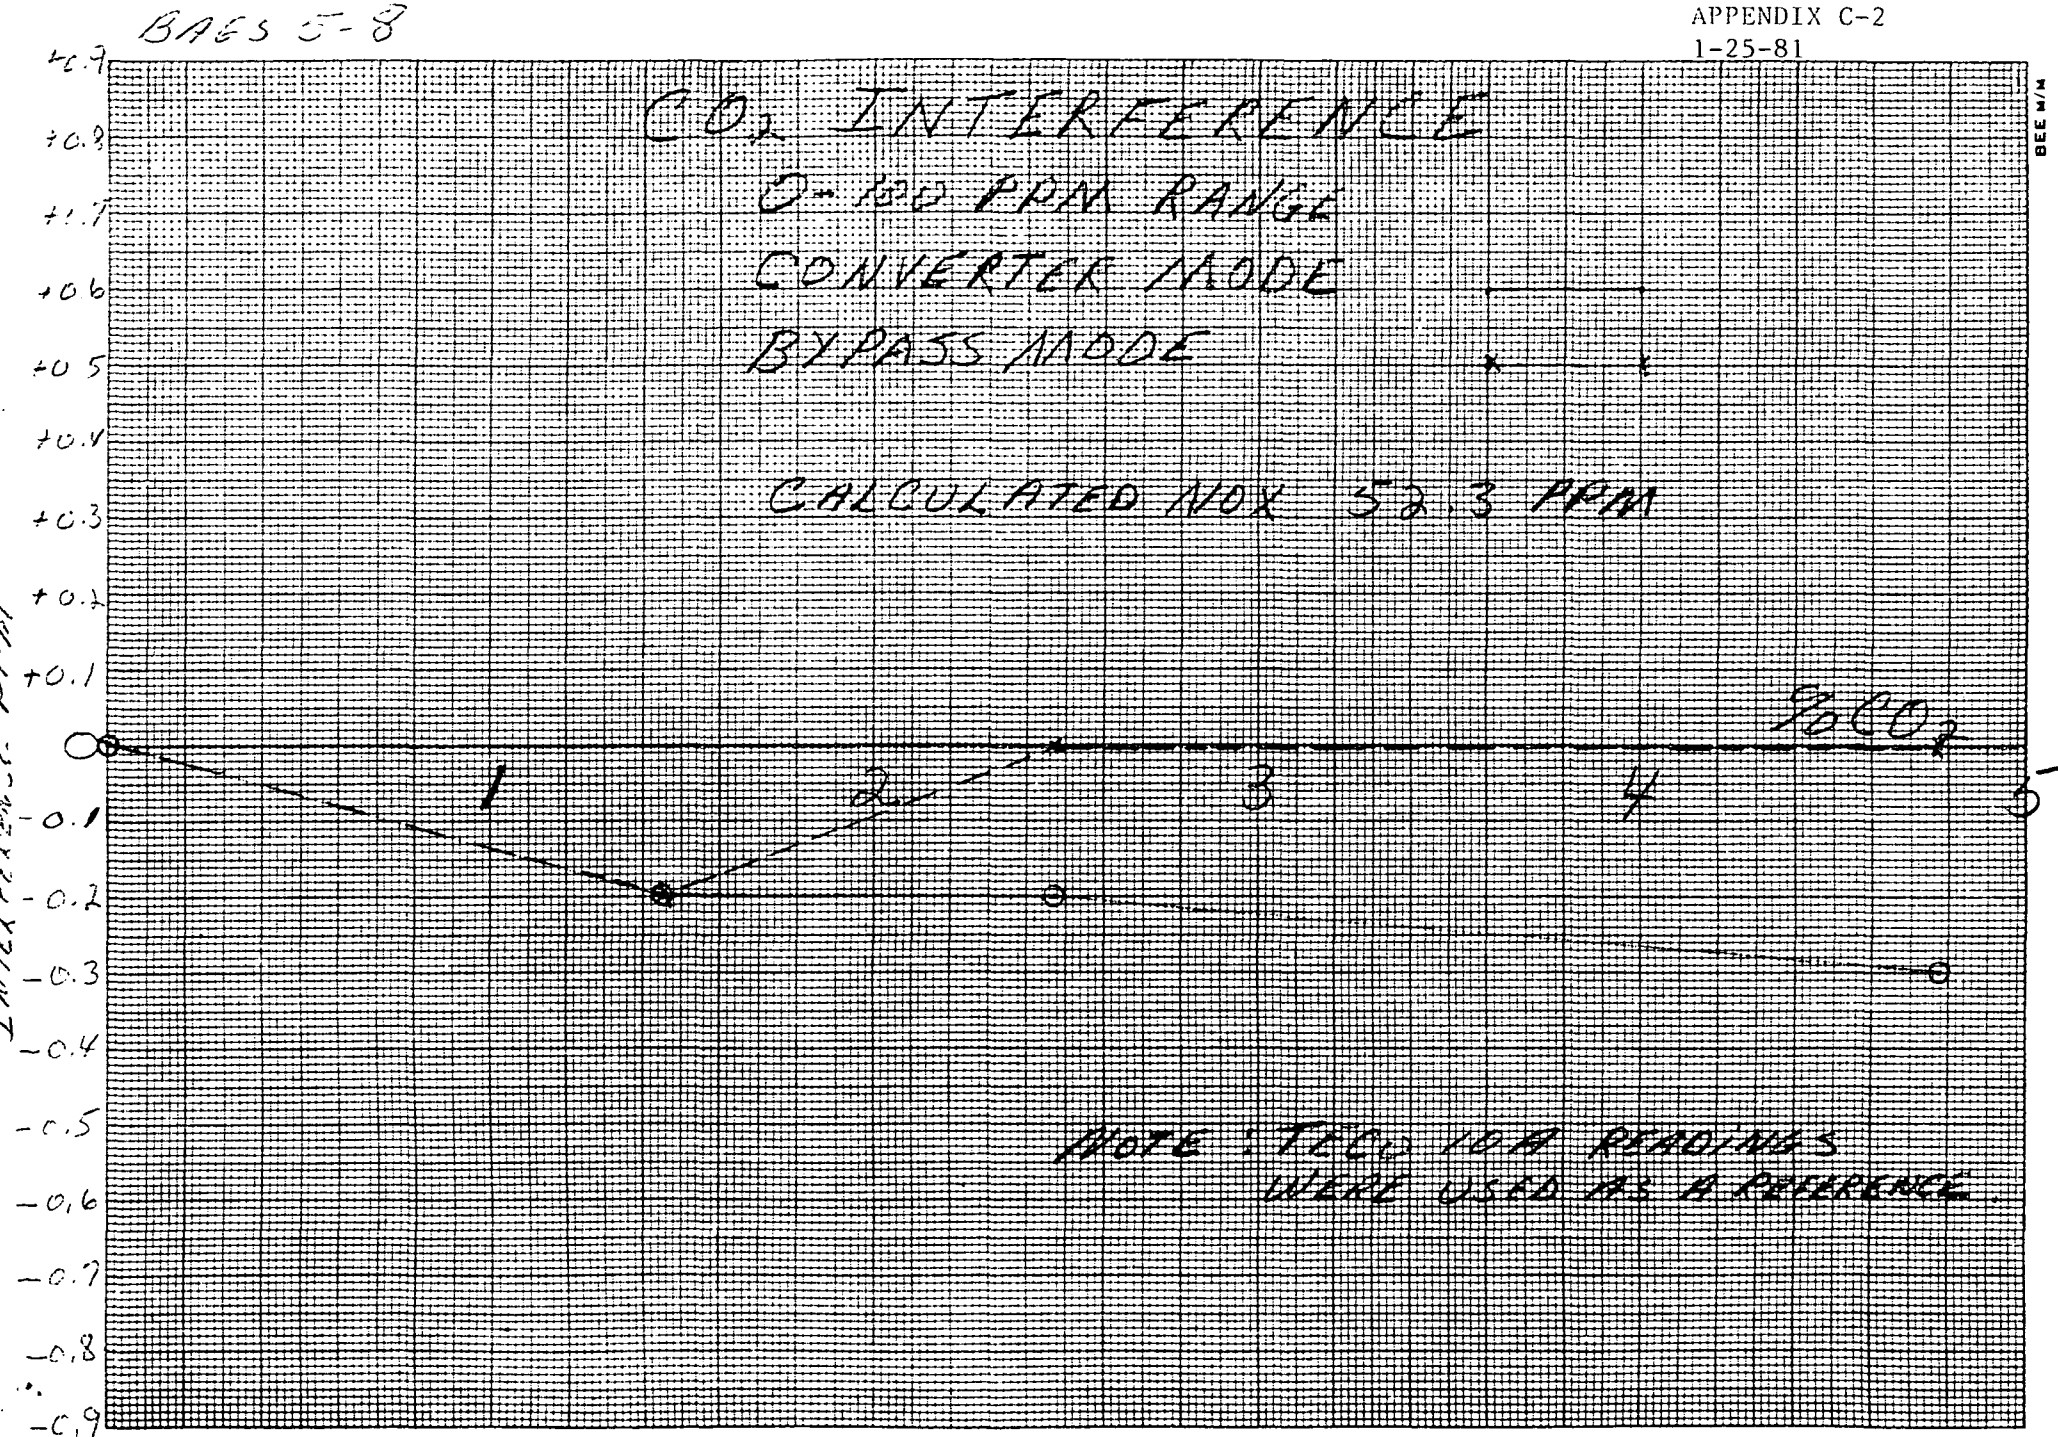 BAGS 5-8
APPENDIX C-2
1-25-81
BEE M/M
CO2 INTERFERENCE
0-100 PPM RANGE
CONVERTER MODE
BYPASS MODE
CALCULATED NOX 52.3 PPM
+0.9
+0.8
+0.7
+0.6
+0.5
+0.4
+0.3
+0.2
+0.1
0
-0.1
-0.2
-0.3
-0.4
-0.5
-0.6
-0.7
-0.8
-0.9
INTERFERENCE PPM
% CO2
1 2 3 4 5
NOTE : TECO 10A READINGS
WERE USED AS A REFERENCE